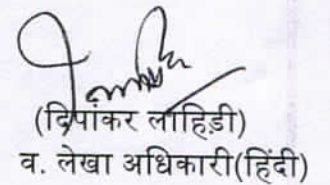 (दिपांकर लाहिड़ी)
व. लेखा अधिकारी(हिंदी)